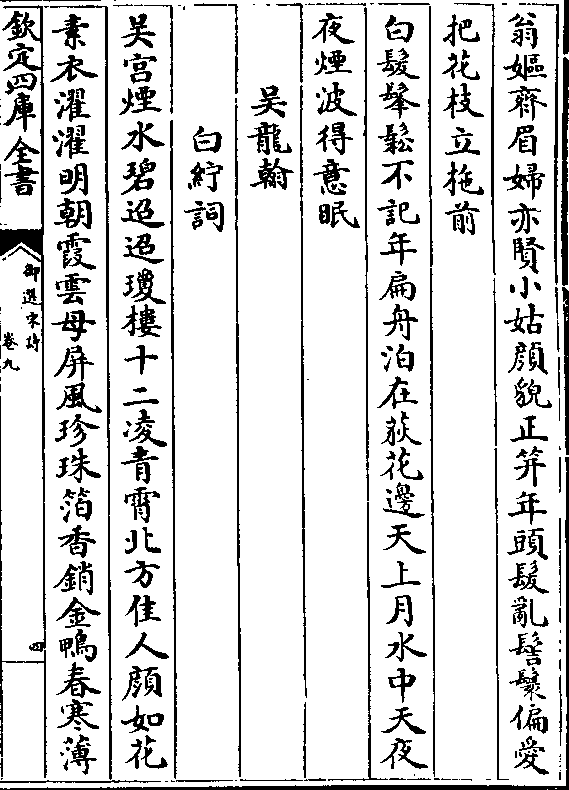 翁嫗齊眉婦亦賢小姑顔貌正笄年頭髮亂髻鬟偏愛
把花枝立拖前
白髮髼鬆不記年扁舟泊在荻花邊天上月水中天夜
夜煙波得意眠
吴龍翰
白紵詞
吴宫煙水碧迢迢瓊樓十二凌青霄北方佳人顔如花
素衣濯濯明朝霞雲母屏風珍珠箔香銷金鴨春寒薄
欽定四庫全書
御選宋詩
卷九
四